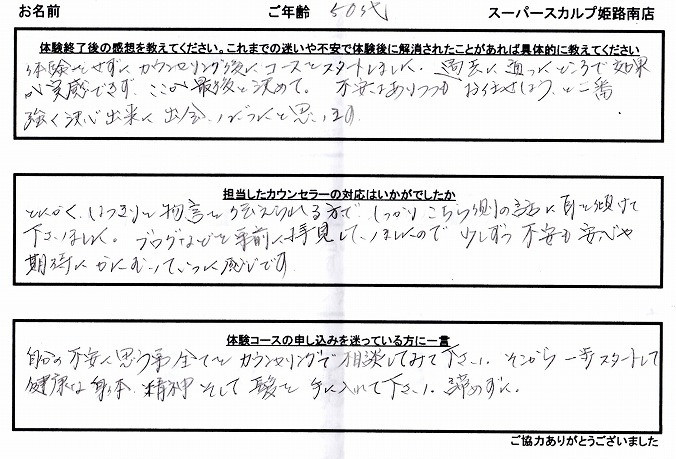 お名前 ご年齢 50代 スーパースカルプ姫路南店
体験終了後の感想を教えてください。これまでの迷いや不安で体験後に解消されたことがあれば具体的に教えてください
体験をせずにカウンセリング後にコースをスタートしました。過去に通ったところで効果
が実感できず、ここが最後と決めて。不安はありつつもお任せしよう、と一番
強く決心出来た出会いだったと思います。
担当したカウンセラーの対応はいかがでしたか
とにかく、はっきりと物言を伝えられる方で、しっかりこちら側の話に耳を傾けて
下さいました。ブログなどを事前に拝見していましたので少しずつ不安も安心や
期待にかわっていった感じです。
体験コースの申し込みを迷っている方に一言
自分の不安に思う事全てをカウンセリングで相談してみて下さい。そこから一歩スタートして
健康な身体、精神そして髪を手に入れて下さい。諦めずに。
ご協力ありがとうございました